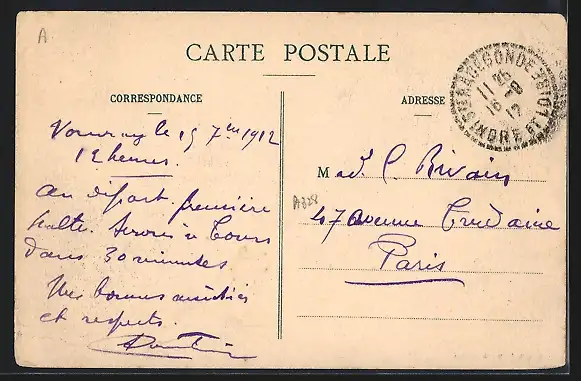 A
CARTE POSTALE
CORRESPONDANCE
ADRESSE
STE RADEGONDE
INDRE ET LOIRE
11 35
16 - 9
12
Vouvray le 15 7bre 1912
12 heures.
au départ. première
halte. Serons à Tours
dans 30 minutes
Mes bonnes amitiés
et respects.
M ad. C. Brivain
A328
47 avenue Trudaine
Paris